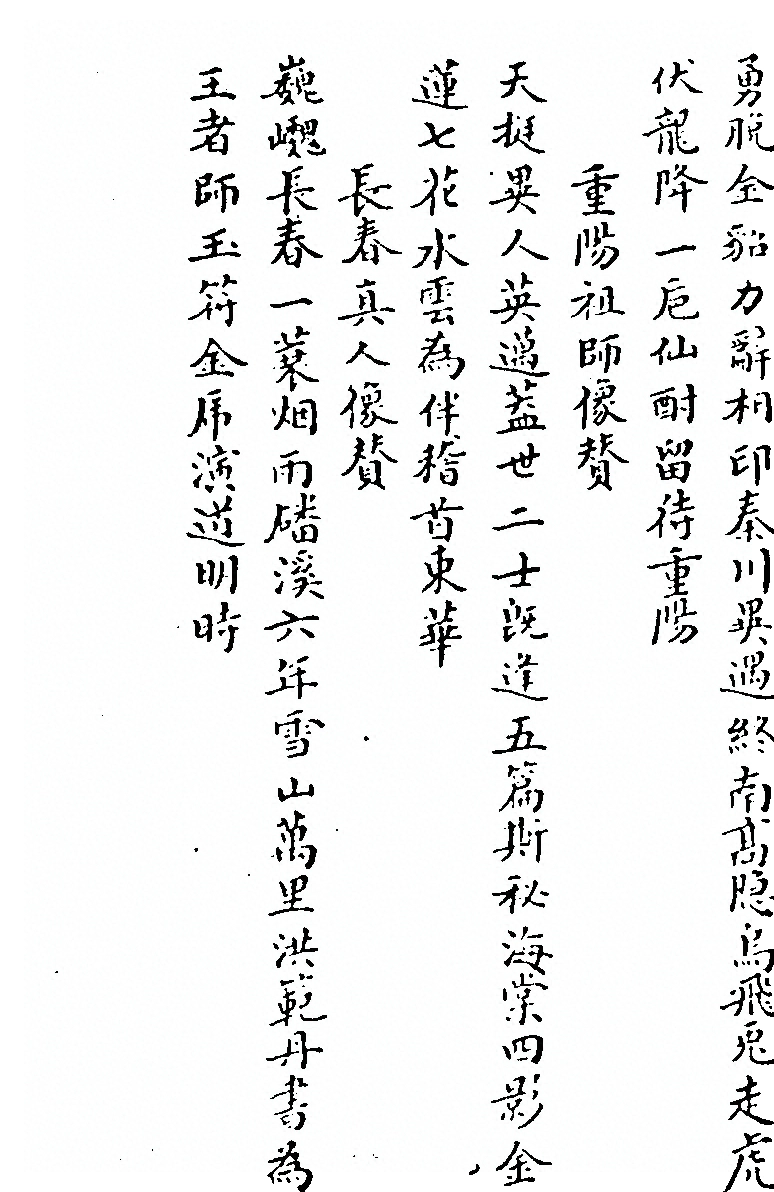 勇脫金貂力辭相印秦川異遇終南高隱烏飛兎走虎
伏龍降一巵仙酎留待重陽
重陽祖師像贊
天挺異人英邁蓋世二士旣逢五篇斯秘海棠四影金
蓮七花水雲為伴稽首東華
長春真人像贊
巍巍長春一蓑烟雨磻溪六年雪山萬里洪範丹書為
王者師玉符金虎演道明時